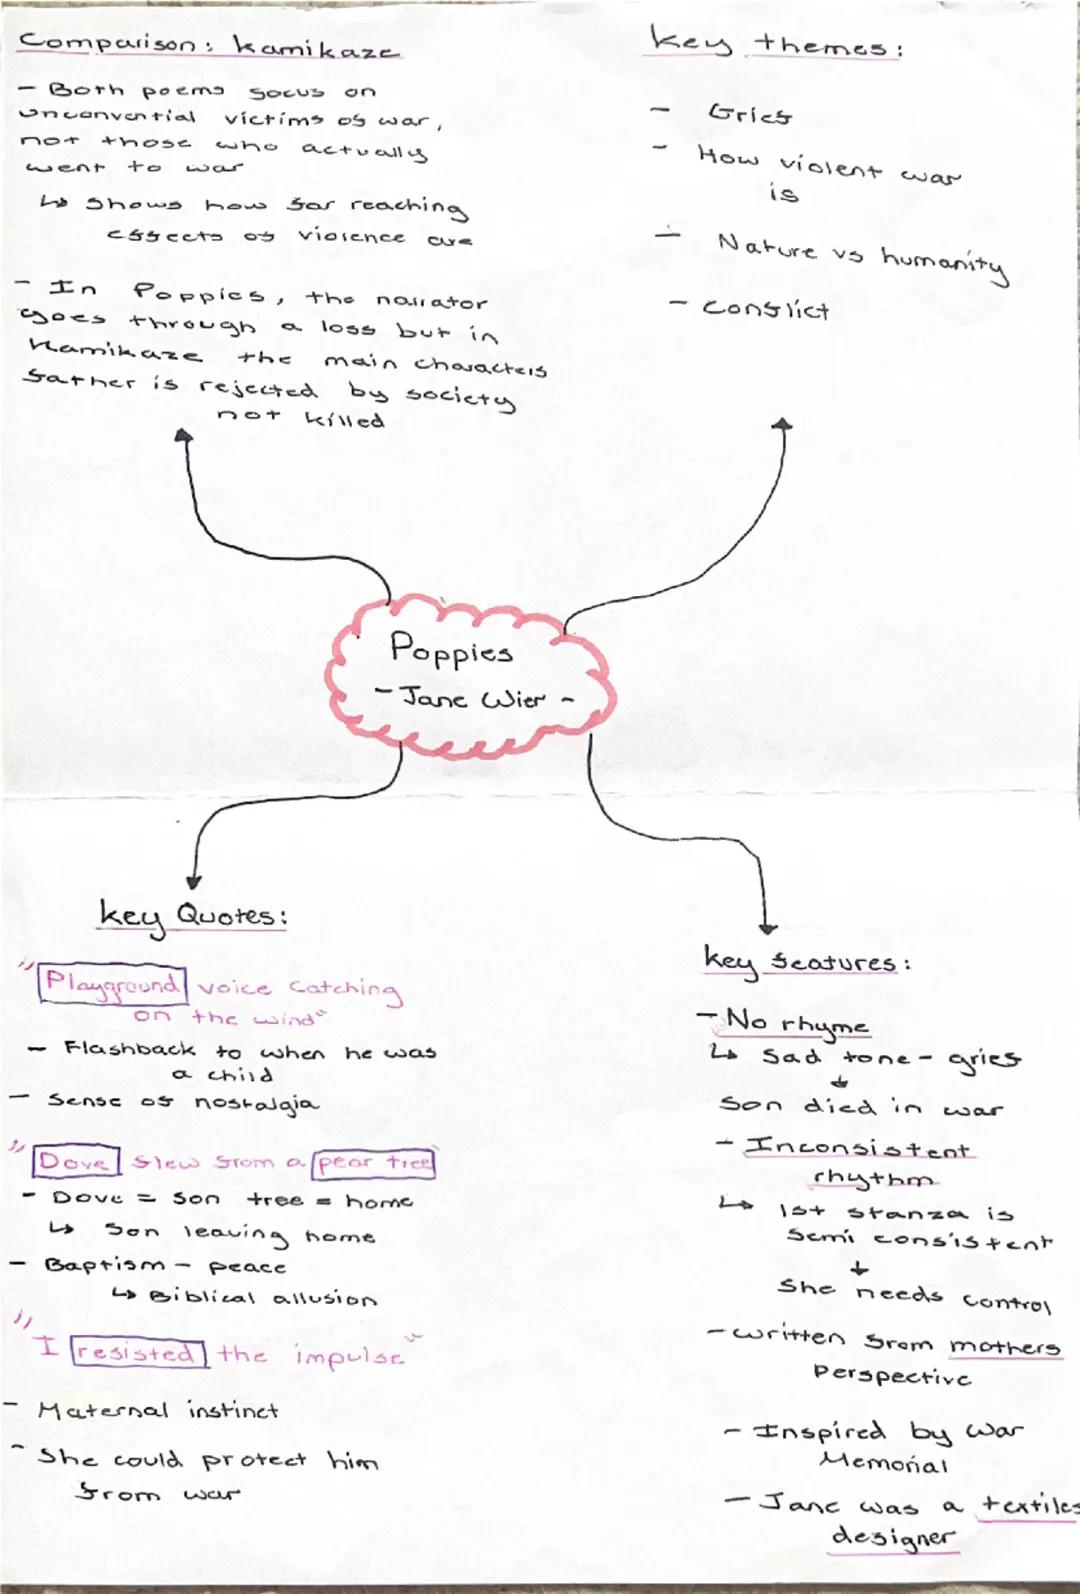 Comparison: Kamikaze
- Both poems focus on
unconvential victims of war,
not those who actually
went to war
↳ Shows how far reaching
effects of violence are
- In Poppies, the narrator
goes through a loss but in
Kamikaze the main characters
father is rejected by society
not killed
Key themes:
- Grief
- How violent war
is
- Nature vs humanity
- Conflict
Poppies
- Jane Wier -
Key Quotes:
"Playground voice catching
on the wind"
- Flashback to when he was
a child
- Sense of nostalgia
"Dove flew from a pear tree"
- Dove = son tree = home
↳ Son leaving home
- Baptism - peace
↳ Biblical allusion
"I resisted the impulse"
- Maternal instinct
- She could protect him
from war
Key features:
- No rhyme
↳ Sad tone - grief
↓
Son died in war
- Inconsistent
rhythm
↳ 1st stanza is
semi consistent
↓
She needs control
- written from mothers
perspective
- Inspired by war
Memorial
- Jane was a textiles
designer